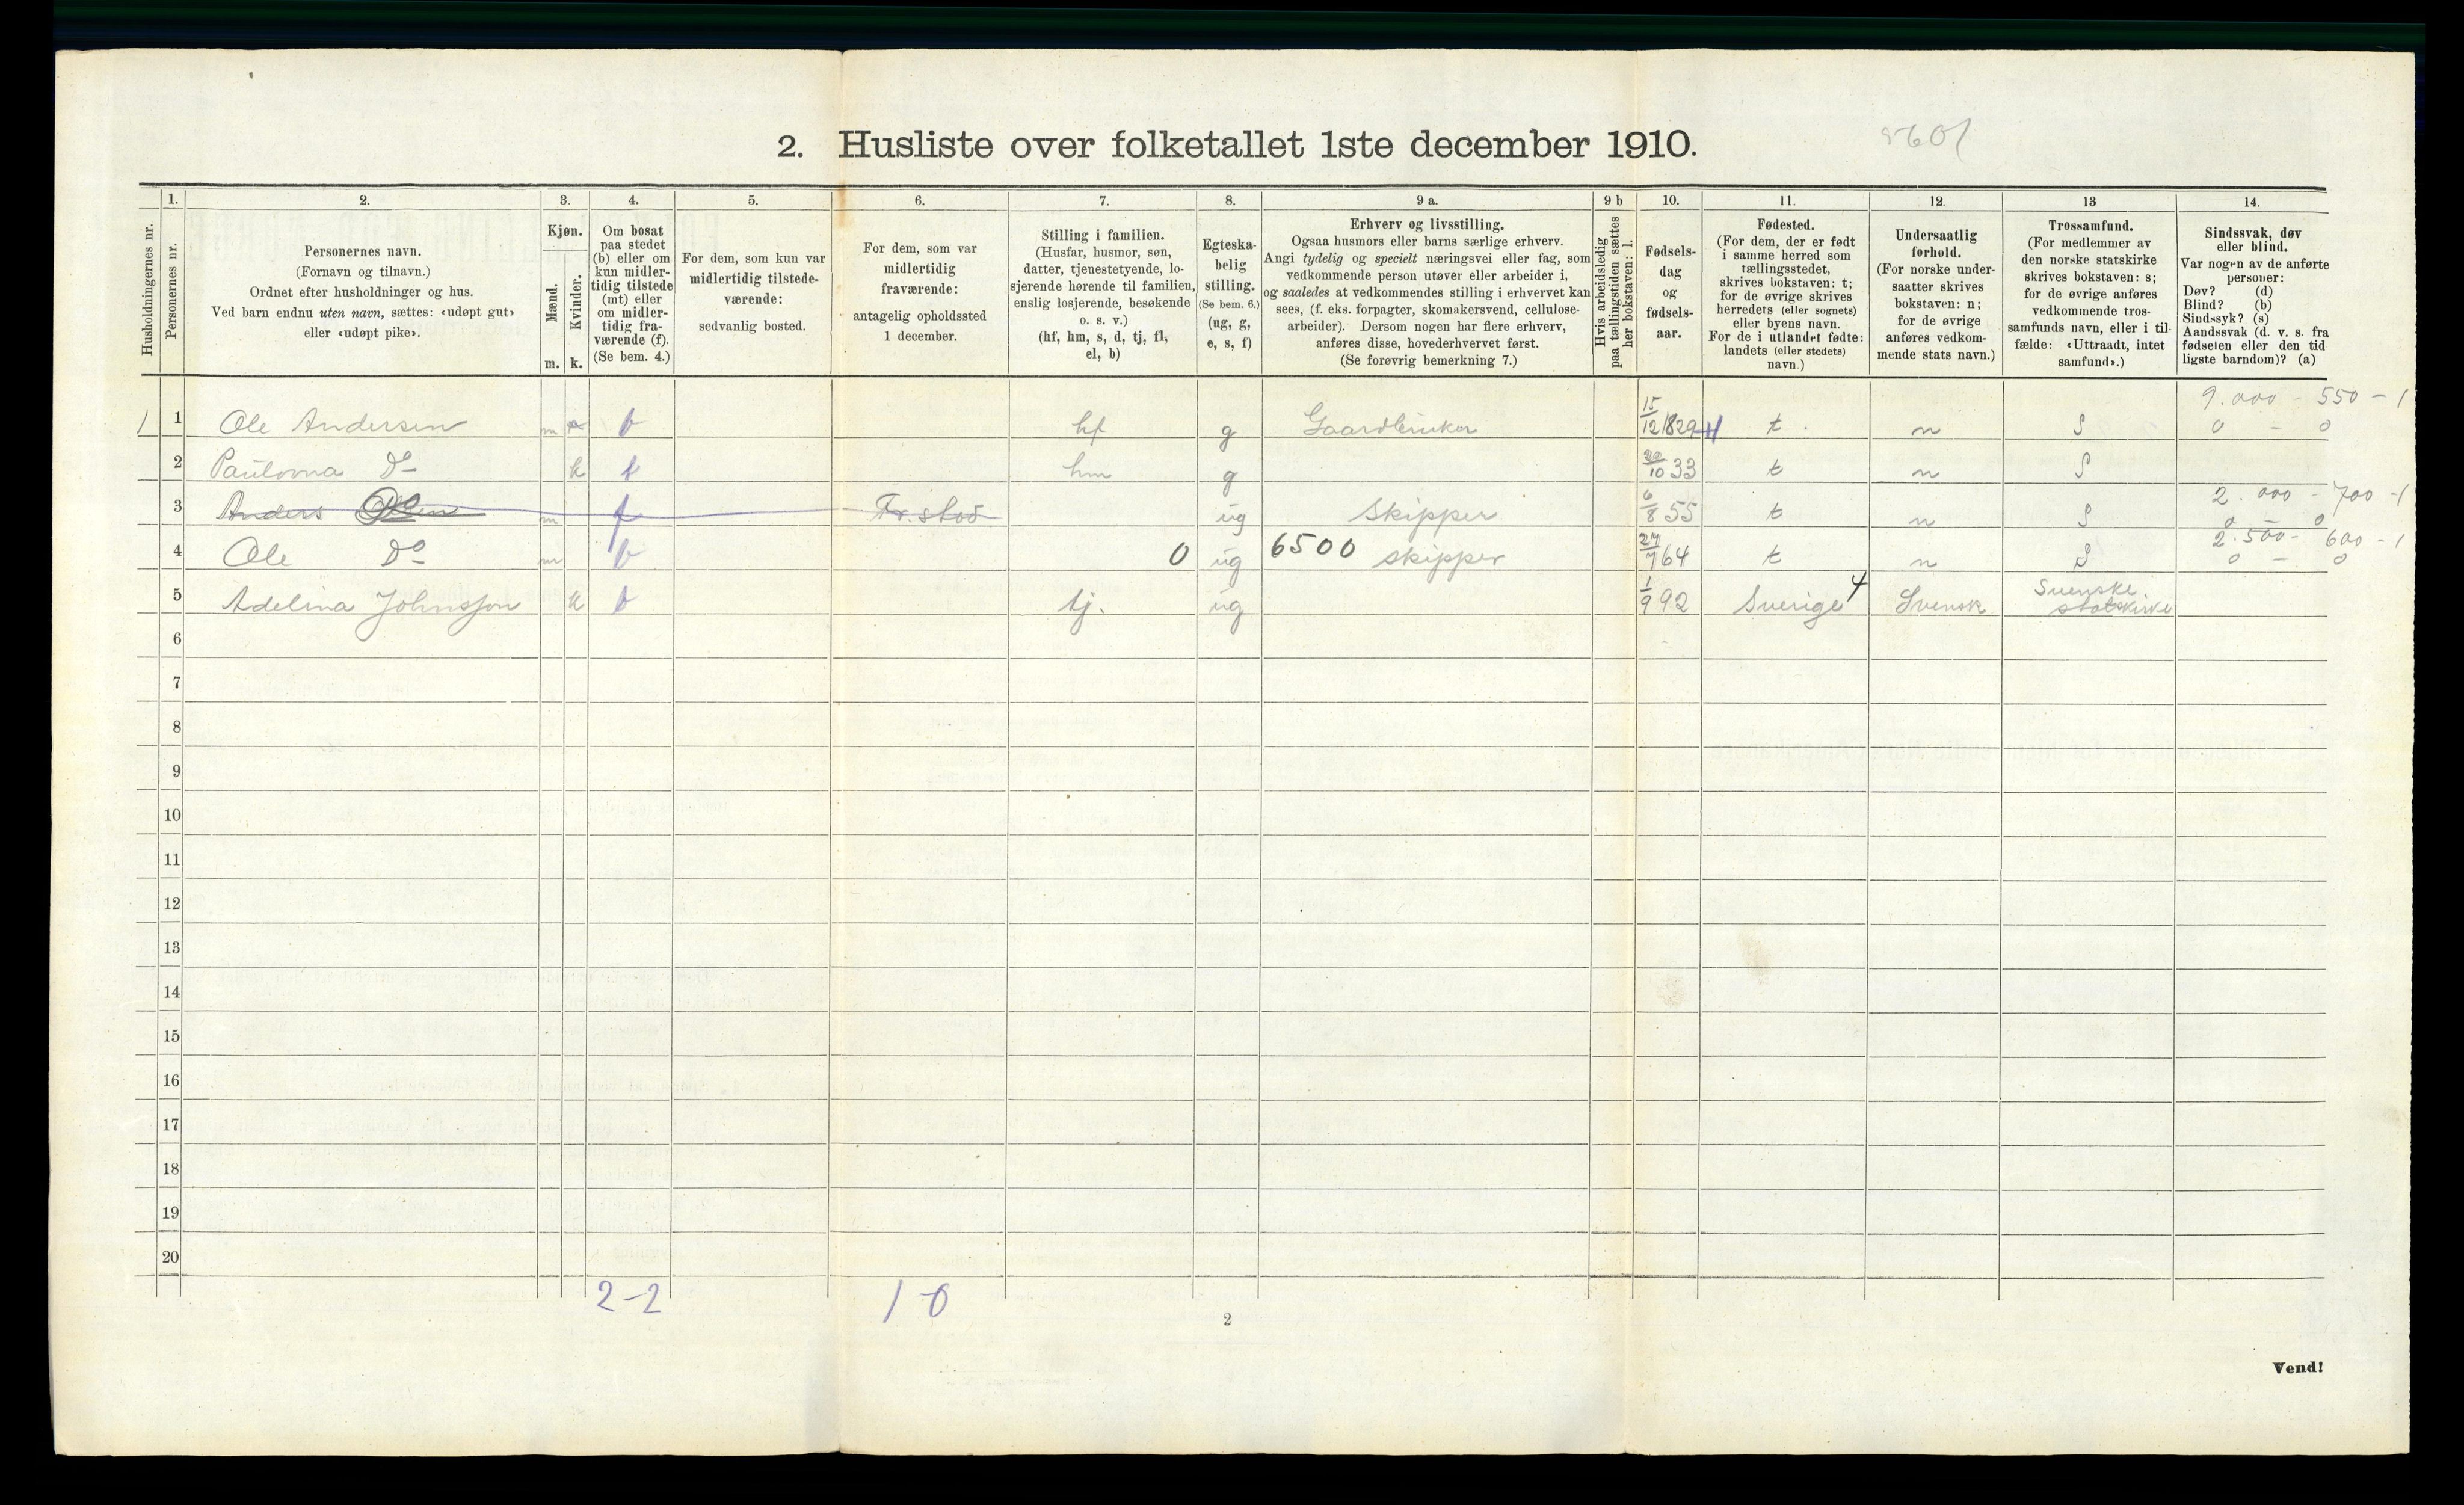 2. Husliste over folketallet 1ste december 1910.
Husholdningernes nr.
1.
Personernes nr.
2.
Personernes navn.
(Fornavn og tilnavn.)
Ordnet efter husholdninger og hus.
Ved barn endnu uten navn, sættes: «udøpt gut»
eller «udøpt pike».
3.
Kjøn.
Mænd.
Kvinder.
m. k.
4.
Om bosat
paa stedet
(b) eller om
kun midler-
tidig tilstede
(mt) eller
om midler-
tidig fra-
værende (f).
(Se bem. 4.)
5.
For dem, som kun var
midlertidig tilstede-
værende:
sedvanlig bosted.
6.
For dem, som var
midlertidig
fraværende:
antagelig opholdssted
1 december.
7.
Stilling i familien.
(Husfar, husmor, søn,
datter, tjenestetyende, lo-
sjerende hørende til familien,
enslig losjerende, besøkende
o. s. v.)
(hf, hm, s, d, tj, fl,
el, b)
8.
Egteska-
belig
stilling.
(Se bem. 6.)
(ug, g,
e, s, f)
9 a.
Erhverv og livsstilling.
Ogsaa husmors eller barns særlige erhverv.
Angi tydelig og specielt næringsvei eller fag, som
vedkommende person utøver eller arbeider i,
og saaledes at vedkommendes stilling i erhvervet kan
sees, (f. eks. forpagter, skomakersvend, cellulose-
arbeider). Dersom nogen har flere erhverv,
anføres disse, hovederhvervet først.
(Se forøvrig bemerkning 7.)
9 b
Hvis arbeidsledig
paa tællingstiden sættes
her bokstaven: l.
10.
Fødsels-
dag
og
fødsels-
aar.
11.
Fødested.
(For dem, der er født
i samme herred som
tællingsstedet,
skrives bokstaven: t;
for de øvrige skrives
herredets (eller sognets)
eller byens navn.
For de i utlandet fødte:
landets (eller stedets)
navn.)
12.
Undersaatlig
forhold.
(For norske under-
saatter skrives
bokstaven: n;
for de øvrige
anføres vedkom-
mende stats navn.)
13
Trossamfund.
(For medlemmer av
den norske statskirke
skrives bokstaven: s;
for de øvrige anføres
vedkommende tros-
samfunds navn, eller i til-
fælde: «Uttraadt, intet
samfund».)
14.
Sindssvak, døv
eller blind.
Var nogen av de anførte
personer:
Døv? (d)
Blind? (b)
Sindssyk? (s)
Aandssvak (d. v. s. fra
fødselen eller den tid
ligste barndom)? (a)
9.000 - 550 - 1
1 1 Ole Andersen m b hf g Gaardbruker 15/12 1829 t. n S 0 - 0
2 Paulovna Do k b hm g 20/10 33 t n S
3 Anders Do m f Fr.stad ug Skipper 6/8 55 t n S 2.000 - 700 - 1
0 - 0
4 Ole Do m b 0 ug 6500 skipper 27/7 64 t n S 2.500 - 600 - 1
0 - 0
5 Adelina Johnsson k b tj. ug 1/9 92 Sverige 4 Svensk Svenske
statskirke
6
7
8
9
10
11
12
13
14
15
16
17
18
19
20
2-2 1-0
2
Vend!